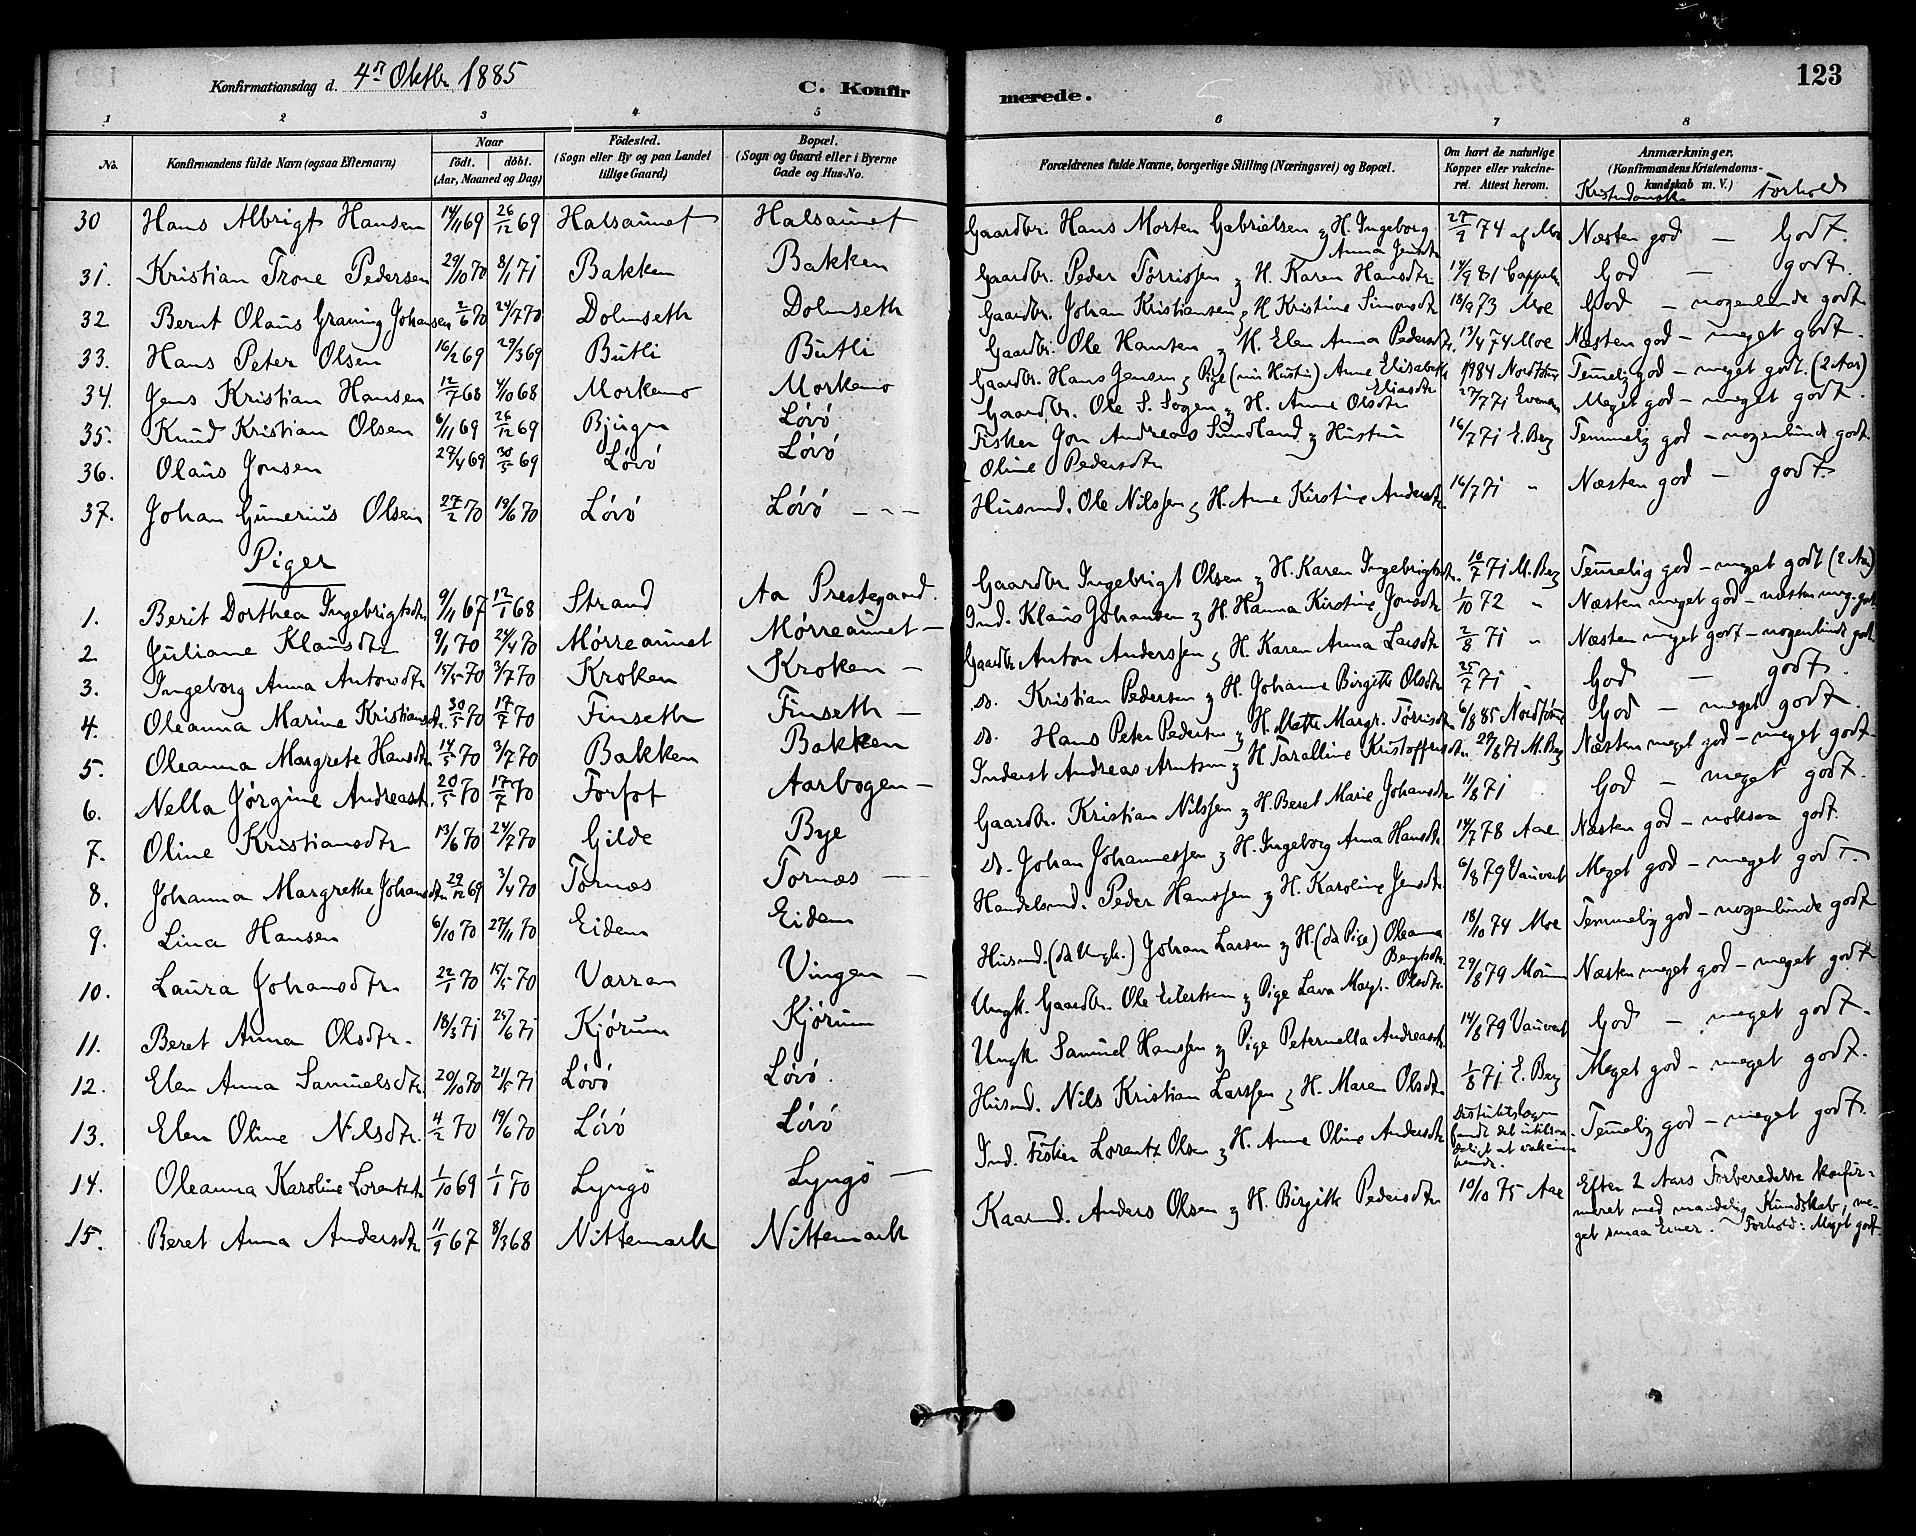 Konfirmationsdag d. 4de Oktbr. 1885
C. Konfirmerede.
123
1 2 3 4 5 6 7 8
No. | Konfirmandens fulde Navn (ogsaa Efternavn) | Naar født. døbt. (Aar, Maaned og Dag) | Fødested. (Sogn eller By og paa Landet tillige Gaard) | Bopæl. (Sogn og Gaard eller i Byerne Gade og Hus-No. | Forældrenes fulde Navne, borgerlige Stilling (Næringsvei) og Bopæl. | Om havt de naturlige Kopper eller vakcineret. Attest herom. | Anmærkninger. (Konfirmandens Kristendomskundskab m. V.) Kristendomsk. Forhold
30 Hans Albrigt Hansen 14/11 69 26/12 69 Halsaunet Halsaunet Gaardbr. Hans Morten Gabrielsen & H. Ingeborg Anna Jensdtr 27/9 74 af Moe Næsten god — Godt.
31. Kristian Trone Pedersen 29/10 70 8/1 71 Bakken Bakken Gaardbr. Peder Tørrissen & H. Karen Hansdtr 14/9 81 Cappeln God — godt.
32 Bernt Olaus Graning Johansen 2/6 70 24/7 70 Dolmseth Dolmseth Gaardbr. Johan Kristiansen & H. Kristine Simonsdtr 18/9 73 Moe God — nogenlunde godt
33. Hans Peter Olsen 16/2 69 29/3 69 Butli Butli Gaardbr. Ole Hansen & H. Elen Anna Pedersdtr. 13/4 74 Moe Næsten god — meget godt.
34. Jens Kristian Hansen 12/7 68 4/10 68 Morkemo Morkemo Gaardbr. Hans Jensen & Pige (nu Hustru) Anne Elisabeth Eliasdtr 1984 Temmelig god — meget godt. (2 Aar)
35. Knud Kristian Olsen 6/11 69 26/12 69 Bjugn Løvø Gaardbr. Ole S. Sogen & H. Anne Olsdtr 27/7 71 Meget god — meget godt.
36. Olaus Jonsen 27/4 69 30/5 69 Løvø Løvø Fisker Jon Andreas Sundland & Hustru Oline Pedersdtr 16/7 71 E. Berg Temmelig god — nogenlunde godt
37. Johan Gunerius Olsen 27/2 70 19/6 70 Løvø Løvø — — — Husmd. Ole Nilssen & H. Anne Kirstine Andersdtr 16/7 71 " Næsten god — godt.
Piger
1. Berit Dorthea Ingebrigtsdtr 9/11 67 12/1 68 Strand Aa Prestegaard. Gaardbr Ingebrigt Olsen & H. Karen Ingebrigtsdtr. 10/7 71 M. Berg Temmelig god — meget godt (2 Aar)
2. Juliane Klausdtr 9/1 70 24/4 70 Mørreaunet Mørreaunet — Ind. Klaus Johansen & H. Hanna Kirstine Jonsdtr 1/10 72 " Næsten meget god — næsten meg. godt
3. Ingeborg Anna Antonsdtr 15/5 70 3/7 70 Kroken Kroken — Gaardbr Anton Anderssen & H. Karen Anna Larsdtr 2/8 71 " Næsten meget godt — nogenlunde godt
4. Oleanna Marine Kristiansdtr. 30/5 70 17/7 70 Finseth Finseth — do. Kristian Pedersen & H. Johanne Birgitte Olsdtr 25/7 71 " God — godt.
5. Oleanna Margrete Hansdtr 14/5 70 3/7 70 Bakken Bakken do. Hans Peter Pedersen & H. Mette Margr. Tørrisdtr 6/8 85 God — meget godt.
6. Nella Jørgine Andreasdtr. 20/5 70 17/7 70 Forfot Aarbogen — Inderst Andreas Arntsen & H. Taralline Kristoffersdtr. 29/8 71 M. Berg Næsten meget god — meget godt
7. Oline Kristiansdtr 13/6 70 24/7 70 Gilde Bye Gaardbr. Kristian Nilssen & H. Beret Marie Johansdtr 11/8 71 God — meget godt.
8. Johanna Margrethe Johansdtr 29/12 69 3/4 70 Tørnæs Tørnæs — do. Johan Johannessen & H. Ingeborg Anna Hansdtr 14/7 78 Aae Næsten god — noksaa godt.
9. Lina Hansen 6/10 70 27/11 70 Eidem Eidem Handelsmd. Peder Hanssen & H. Karoline Jensdtr 6/8 79 Vauvert Meget god — meget godt.
10. Laura Johansdtr. 22/1 70 15/5 70 Værran Vingen — Husmd. (da Ungk.) Johan Larsen & H. (da Pige) Oleanna Bengtsdtr. 18/10 74 Moe Temmelig god — nogenlunde godt
11. Beret Anna Olsdtr. 18/3 71 25/6 71 Kjørum Kjørum Ungk. Gaardbr. Ole Eilertsen & Pige Lava Margr. Olsdtr. 29/8 79 Næsten meget god — meget godt
12. Elen Anna Samuelsdtr 20/10 70 21/5 71 Løvø Løvø. Ungk Samuel Hanssen & Pige Peternella Andreasdtr 14/8 79 Vauvert God — meget godt.
13. Elen Oline Nilsdtr. 4/2 70 19/6 70 Løvø Løvø Husmd. Nils Kristian Larssen & H. Maren Olsdtr 1/8 71 E. Berg Meget god — meget godt.
14. Oleanna Karoline Lorentsdtr 1/10 69 1/1 70 Lyngø Lyngø — Ind. Fisker Lorentz Olsen & H. Anne Oline Andersdtr Distriktslægen fandt det utilraadeligt at vakcinere hende. Temmelig god — meget godt.
15. Beret Anna Andersdtr 11/9 67 8/3 68 Nittemark Nittemark Kaarmd. Anders Olsen & H. Birgitte Pedersdtr 10/10 75 Aae Efter 2 Aars Forberedelse konfirmeret med mandelig Kundskab, meget smaa Evner. Forhold: Meget godt.